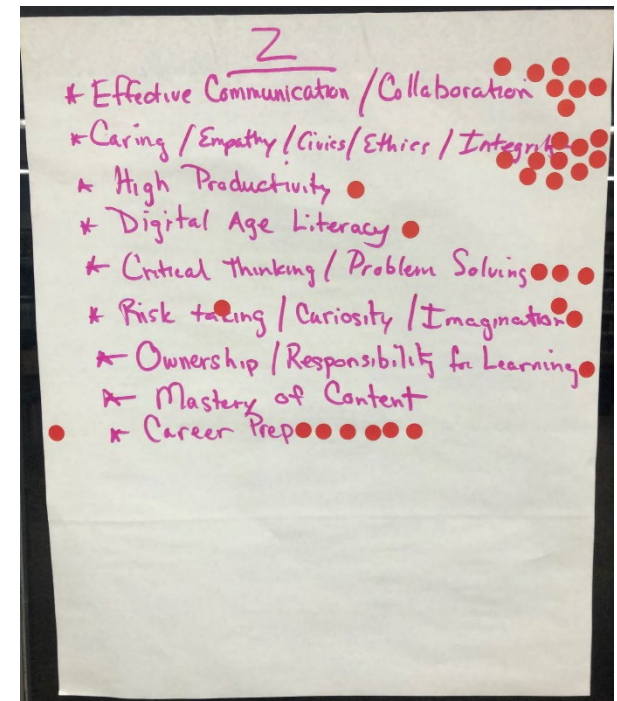 2
* Effective Communication / Collaboration
* Caring / Empathy / Civics / Ethics / Integrity
* High Productivity
* Digital Age Literacy
* Critical Thinking / Problem Solving
* Risk taking / Curiosity / Imagination
* Ownership / Responsibility for Learning
* Mastery of Content
* Career Prep